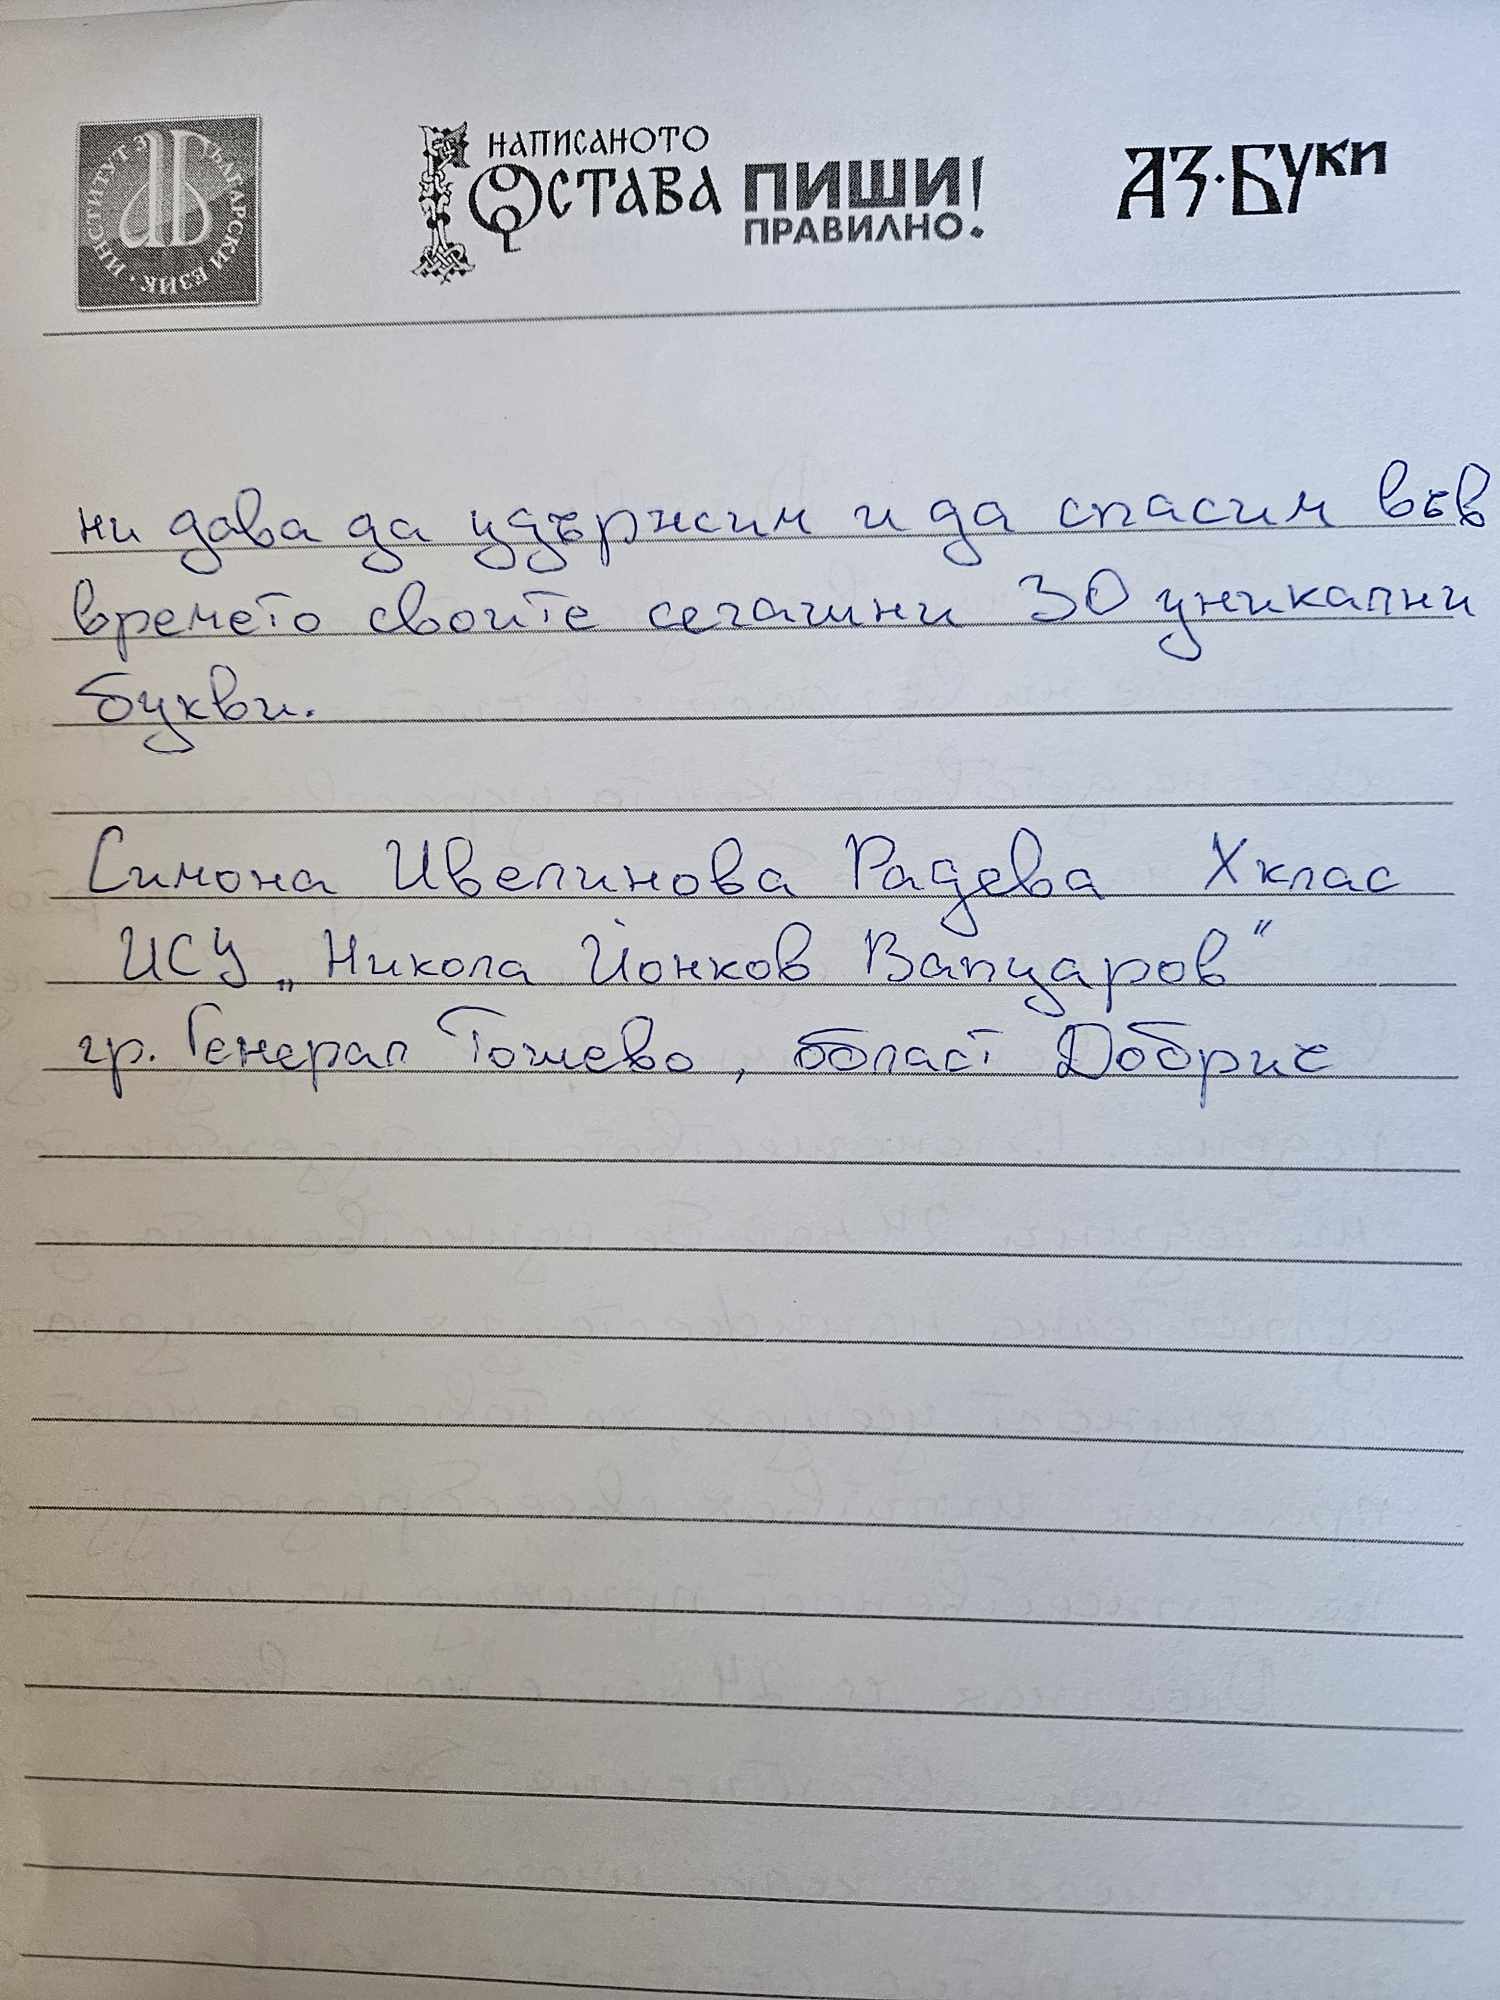 ИНСТИТУТ ЗА БЪЛГАРСКИ ЕЗИК
НАПИСАНОТО
ОСТАВА
ПИШИ
ПРАВИЛНО!
АЗ·БУКИ
ни дава да удържим и да спасим във
времето своите сегашни 30 уникални
букви.
Симона Ивелинова Радева X клас
ИСУ „Никола Йонков Вапцаров“
гр. Генерал Тошево, област Добрич